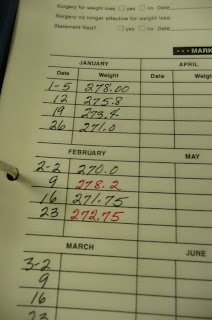 Surgery for weight loss □ yes □ no Date
Surgery no longer effective for weight loss
Statement filed? □ yes □ no Date
••• MARK
JANUARY APRIL
Date Weight Date Weigh
1-5 278.00
12 275.8
19 273.4
26 271.0
FEBRUARY MAY
2-2 270.0
9 278.2
16 271.75
23 272.75
MARCH JUNE
3-2
9
16
23